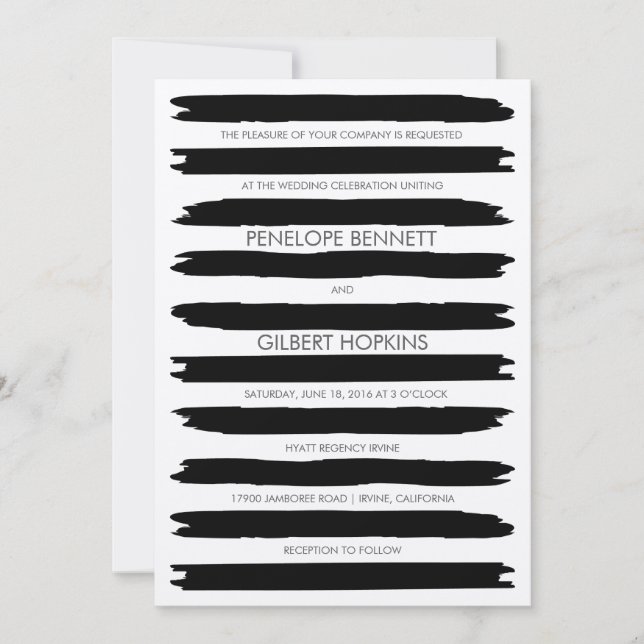 THE PLEASURE OF YOUR COMPANY IS REQUESTED
AT THE WEDDING CELEBRATION UNITING
PENELOPE BENNETT
AND
GILBERT HOPKINS
SATURDAY, JUNE 18, 2016 AT 3 O'CLOCK
HYATT REGENCY IRVINE
17900 JAMBOREE ROAD | IRVINE, CALIFORNIA
RECEPTION TO FOLLOW